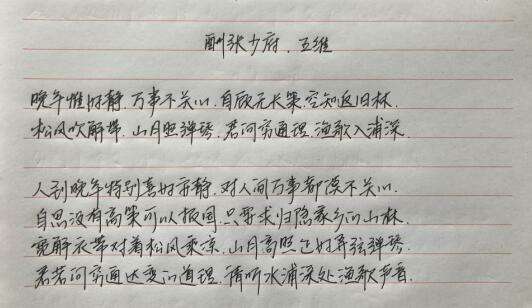 酬张少府.王维
晚年惟好静.万事不关心.自顾无长策.空知返旧林.
松风吹解带.山月照弹琴.君问穷通理.渔歌入浦深.
人到晚年特别喜好安静.对人间万事都漠不关心.
自思没有高策可以报国.只要求归隐家乡的山林.
宽解衣带对着松风乘凉.山月高照正好弄弦弹琴.
君若问穷通达变的道理.请听水浦深处渔歌声音.